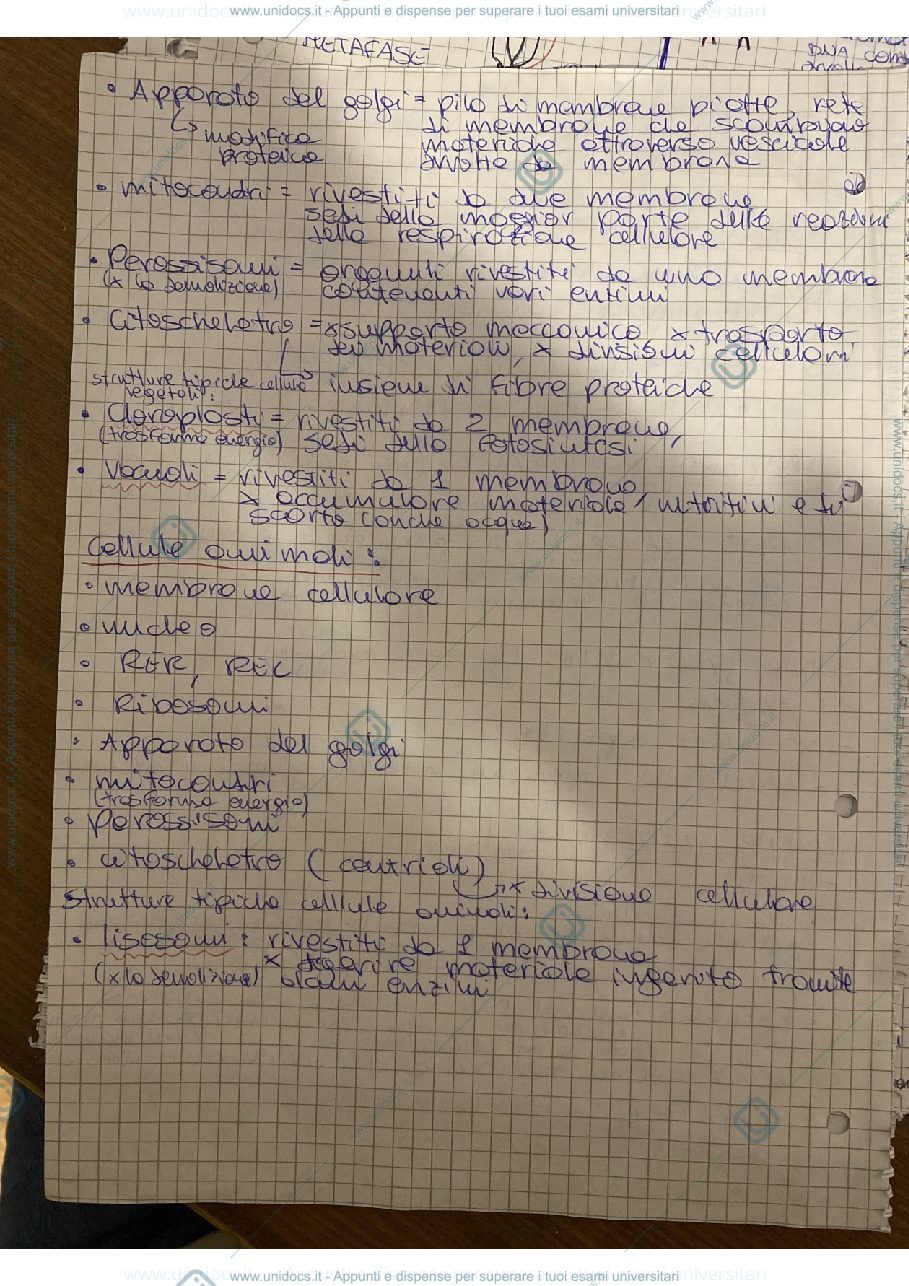 www.unidocs.it - Appunti e dispense per superare i tuoi esami universitari
METAFASE
DNA
• Apparato del golgi = pila di membrane piatte, rete
↳ modifica di membrane che scambiano
proteine materiale attraverso vescicole
di membrana
• mitocondri = rivestiti da due membrane
sedi della maggior parte delle reazioni
della respirazione cellulare
• Perossisomi = organuli rivestiti da una membrana
(x la demolizione) contenenti vari enzimi
• Citoscheletro = x supporto meccanico x trasporto
dei materiali, x divisioni cellulari
↳ insieme di fibre proteiche
strutture tipiche cellule
vegetali:
• Cloroplasti = rivestiti da 2 membrane,
(trasforma energia) sedi della fotosintesi
• Vacuoli = rivestiti da 1 membrana
x accumulare materiale nutritivi e di
scarto (anche acqua)
Cellule animali:
• membrana cellulare
• nucleo
• RER, REL
• Ribosomi
• Apparato del golgi
• mitocondri
(trasforma energia)
• Perossisomi
• citoscheletro (centrioli)
↳ x divisione cellulare
strutture tipiche cellule animali:
• lisosomi: rivestiti da 1 membrana
x digerire materiale ingerito tramite
(x la demolizione) alcuni enzimi
www.unidocs.it - Appunti e dispense per superare i tuoi esami universitari